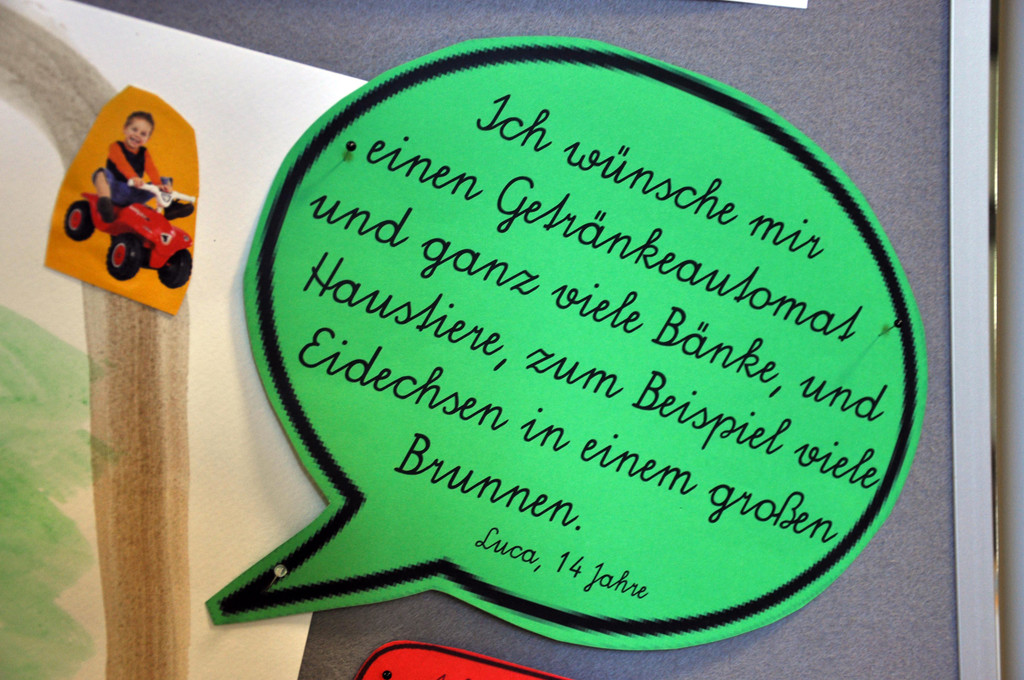 Ich wünsche mir
einen Getränkeautomat
und ganz viele Bänke, und
Haustiere, zum Beispiel viele
Eidechsen in einem großen
Brunnen.
Luca, 14 Jahre